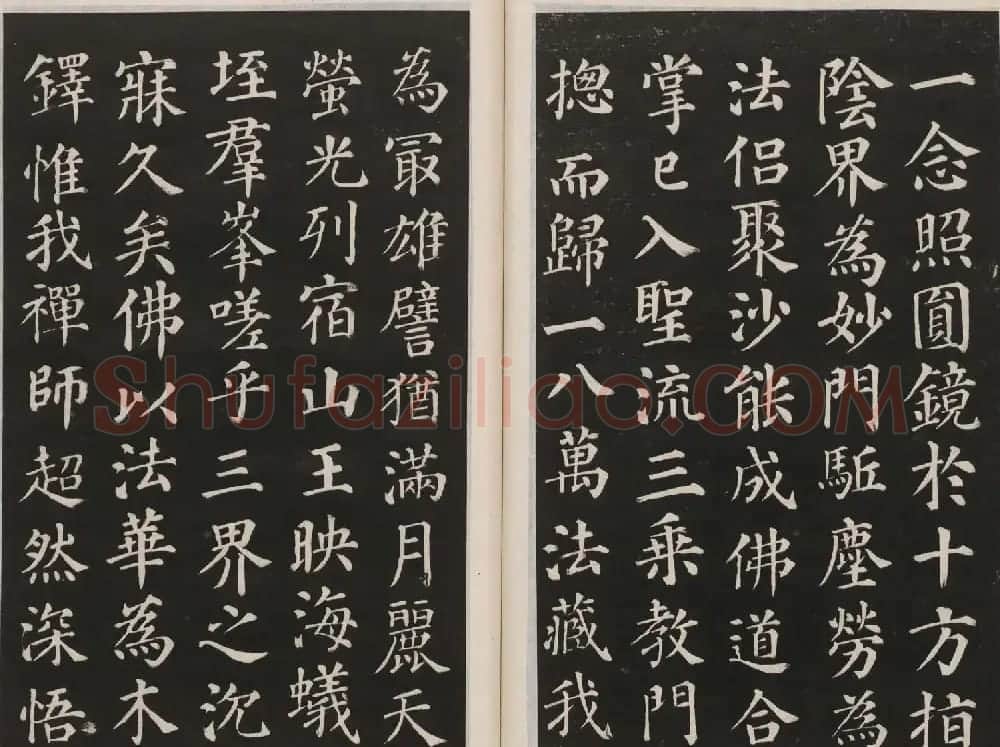 一念照圓鏡於十方指
陰界為妙門駈塵勞為
法侶聚沙能成佛道合
掌已入聖流三乘教門
摠而歸一八萬法藏我
為冣雄譬猶滿月麗天
螢光列宿山王映海蟻
垤羣峯嗟乎三界之沉
寐久矣佛以法華為木
鐸惟我禪師超然深悟
Shufaziliao.COM